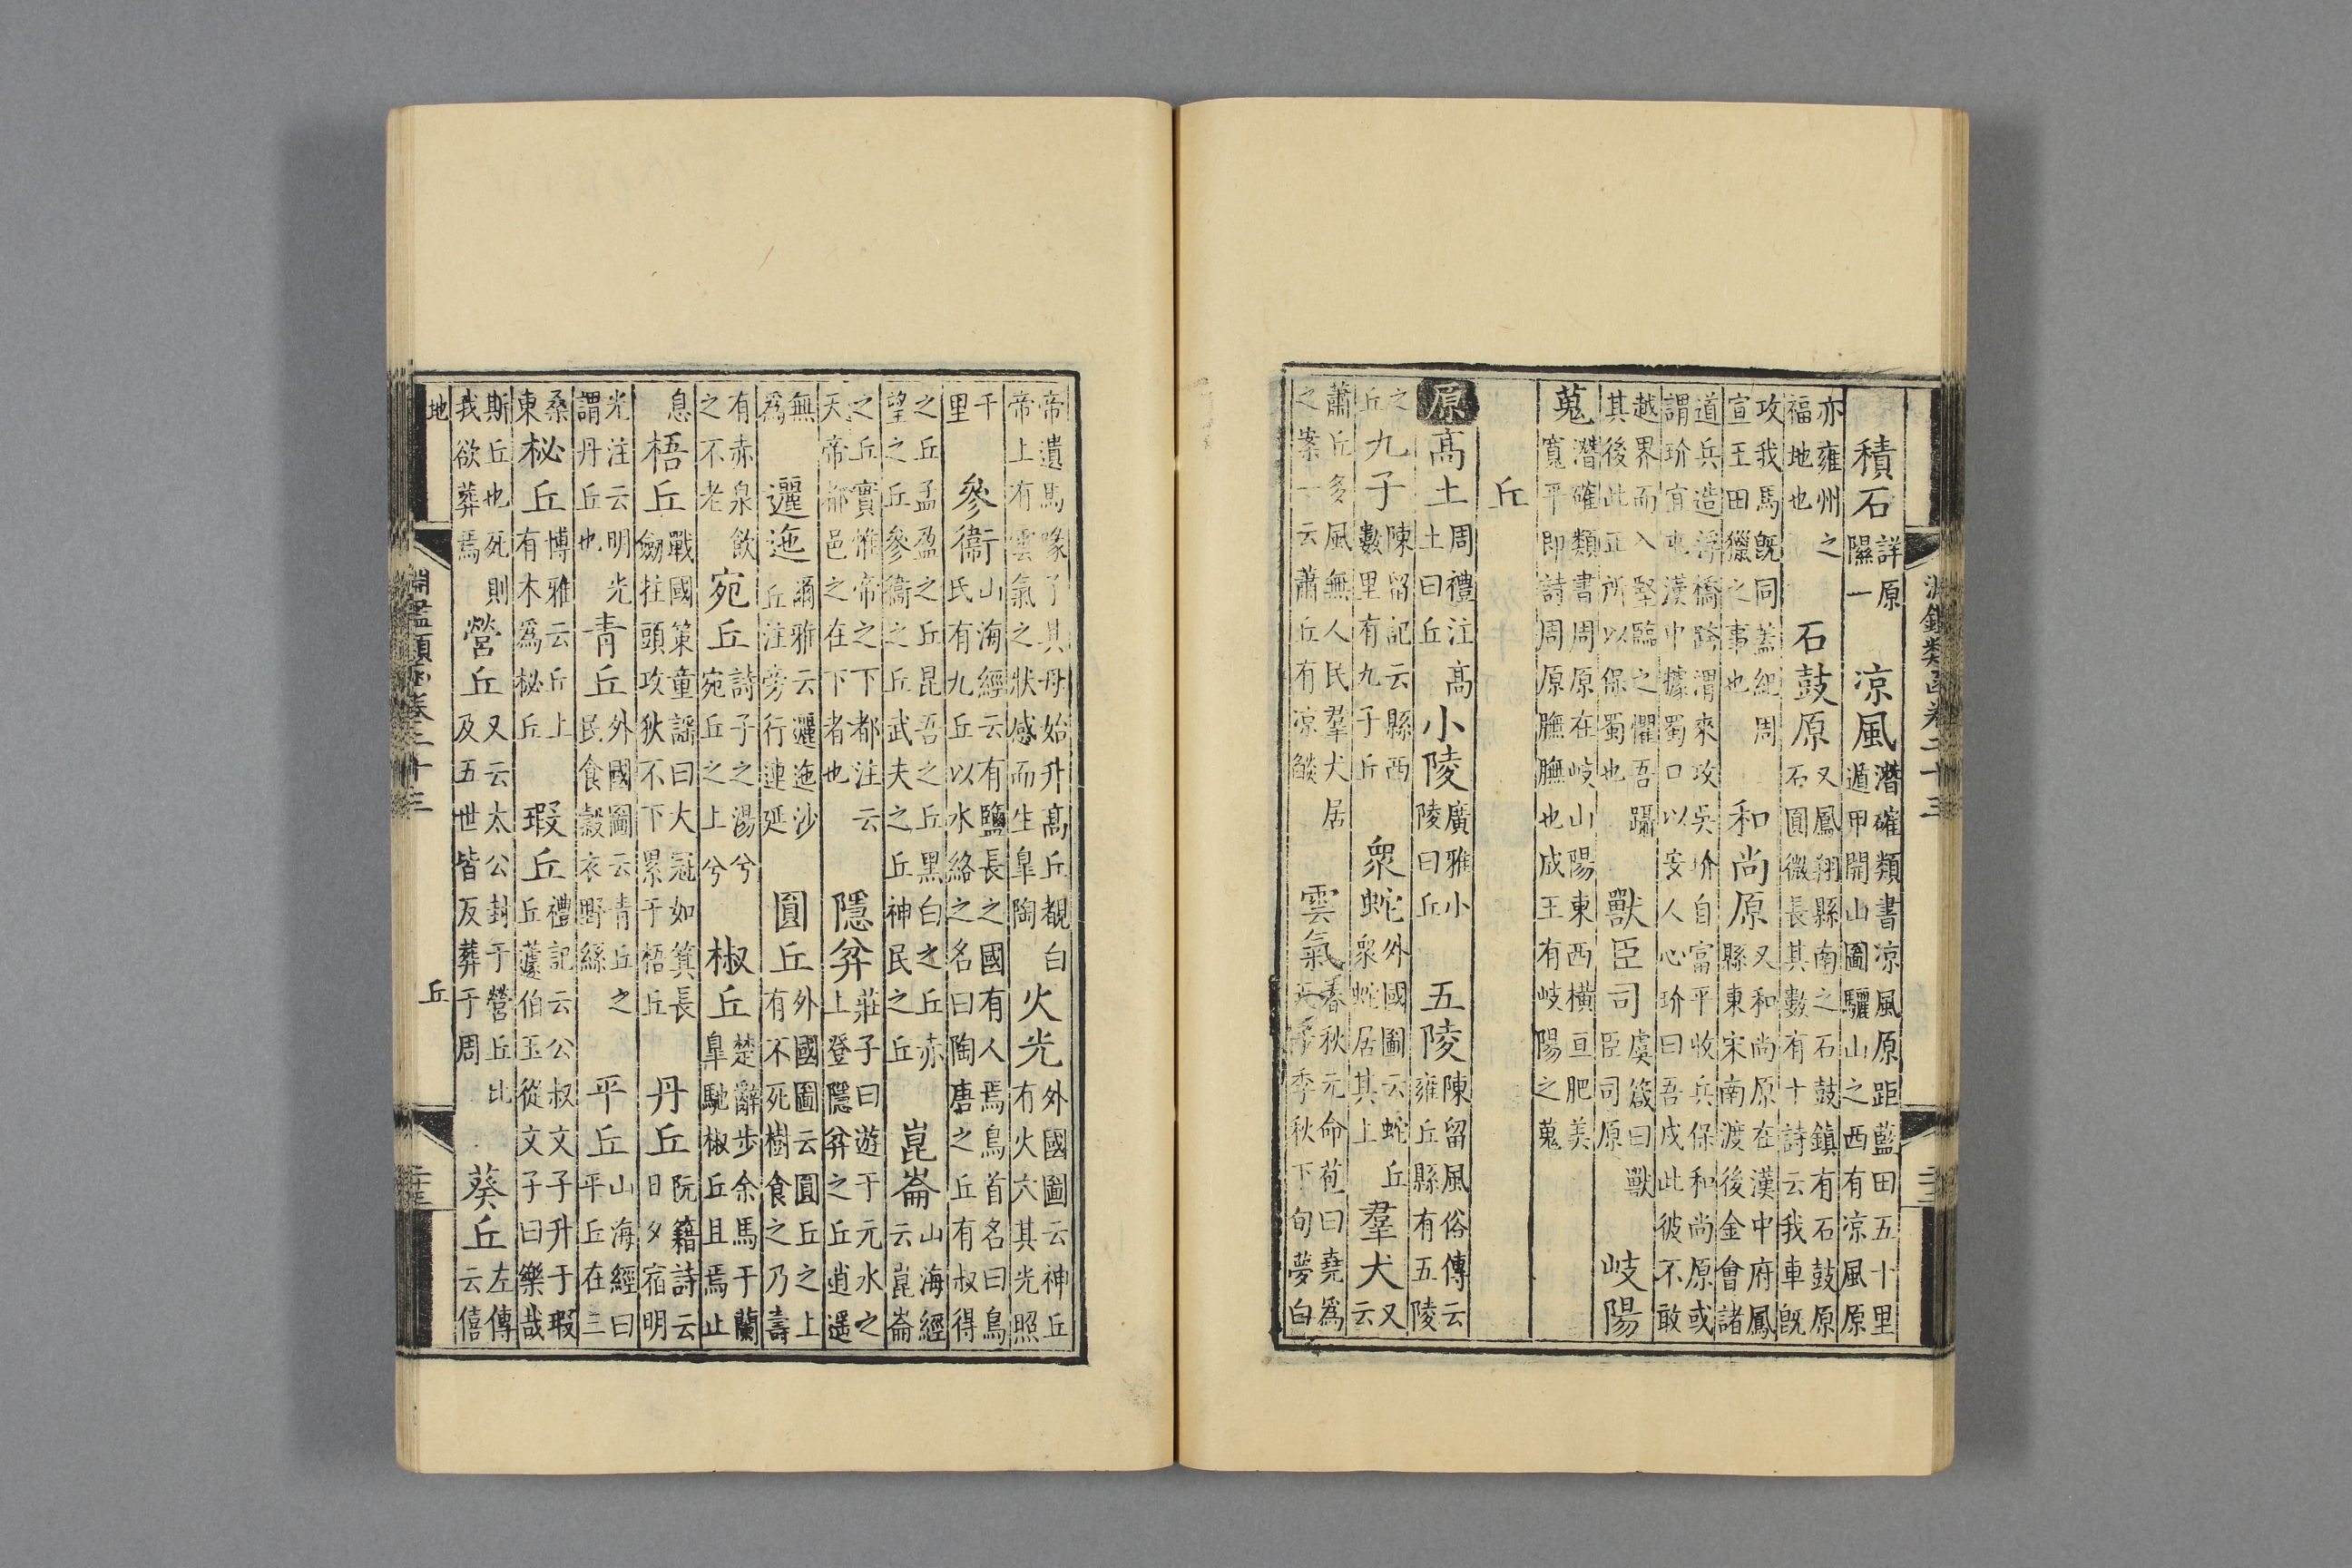 淵鑑類函卷二十三
積石詳原隰一 凉風潛確類書凉風原距藍田五十里遁甲開山圖驪山之西有凉風原
亦雍州之福地也 石鼓原又鳳翔縣南之石鼓鎮有石鼓原石圓微長其數有十詩云我車既
攻我馬既同蓋紀周宣王田獵之事也 和尚原又和尚原在漢中府鳳縣東宋南渡後金會諸
道兵造浮橋跨渭來攻吳玠自富平收兵保和尚原或謂玠宜屯漢中據蜀口以安人心玠曰吾戍此彼不敢
越界而入堅臨之懼吾躡其後此正所以保蜀也 獸臣司虞箴曰獸臣司原 岐陽
蒐潛確類書周原在岐山陽東西橫亘肥美寬平即詩周原膴膴也成王有岐陽之蒐
丘
原高土周禮注高土曰丘 小陵廣雅小陵曰丘 五陵陳留風俗傳云雍丘縣有五陵
之丘 九子陳留記云縣西數里有九子丘 衆蛇外國圖云蛇丘衆蛇居其上 羣犬又云
蕭丘多風無人民羣犬居之案一云蕭丘有凉燄 雲氣春秋元命苞曰堯爲季秋下旬夢白
帝遺馬喙子其母始升高丘覩白帝上有雲氣之狀感而生臯陶 火光外國圖云神丘有火穴其光照
千里 參衞山海經云有鹽長之國有人焉鳥首名曰鳥氏有九丘以水絡之名曰陶唐之丘有叔得
之丘孟盈之丘昆吾之丘黑白之丘赤望之丘參衞之丘武夫之丘神民之丘 崑崙山海經云崑崙
之丘實惟帝之下都注云天帝都邑之在下者也 隱弅莊子曰遊于元水之上登隱弅之丘逍遥
無爲 邐迤爾雅云邐迤沙丘注旁行連延 圓丘外國圖云圓丘之上有不死樹食之乃壽
有赤泉飲之不老 宛丘詩子之湯兮宛丘之上兮 椒丘楚辭步余馬于蘭臯馳椒丘且焉止
息 梧丘戰國策童謡曰大冠如箕長劒拄頤攻狄不下累于梧丘 丹丘阮籍詩云日夕宿明
光注云明光謂丹丘也 青丘外國圖云青丘之民食榖衣野絲 平丘山海經曰平丘在三
桑東 柲丘博雅云丘上有木爲柲丘 瑕丘禮記云公叔文子升于瑕丘蘧伯玉從文子曰樂哉
斯丘也死則我欲葬焉 營丘又云太公封于營丘比及五世皆反葬于周 葵丘左傳云僖
淵鑑類函卷二十三
地 丘